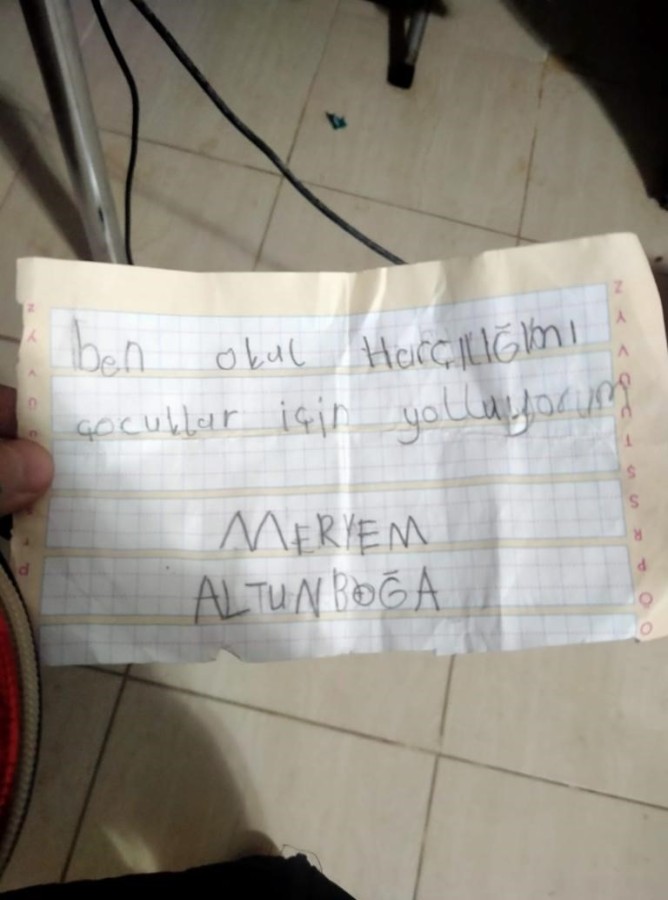 ben okul HarçlIĞImI
çocuklar için yolluyorum
MERYEM
ALTUNBOĞA
Z Y V Ü U T Ş S R P Ö O